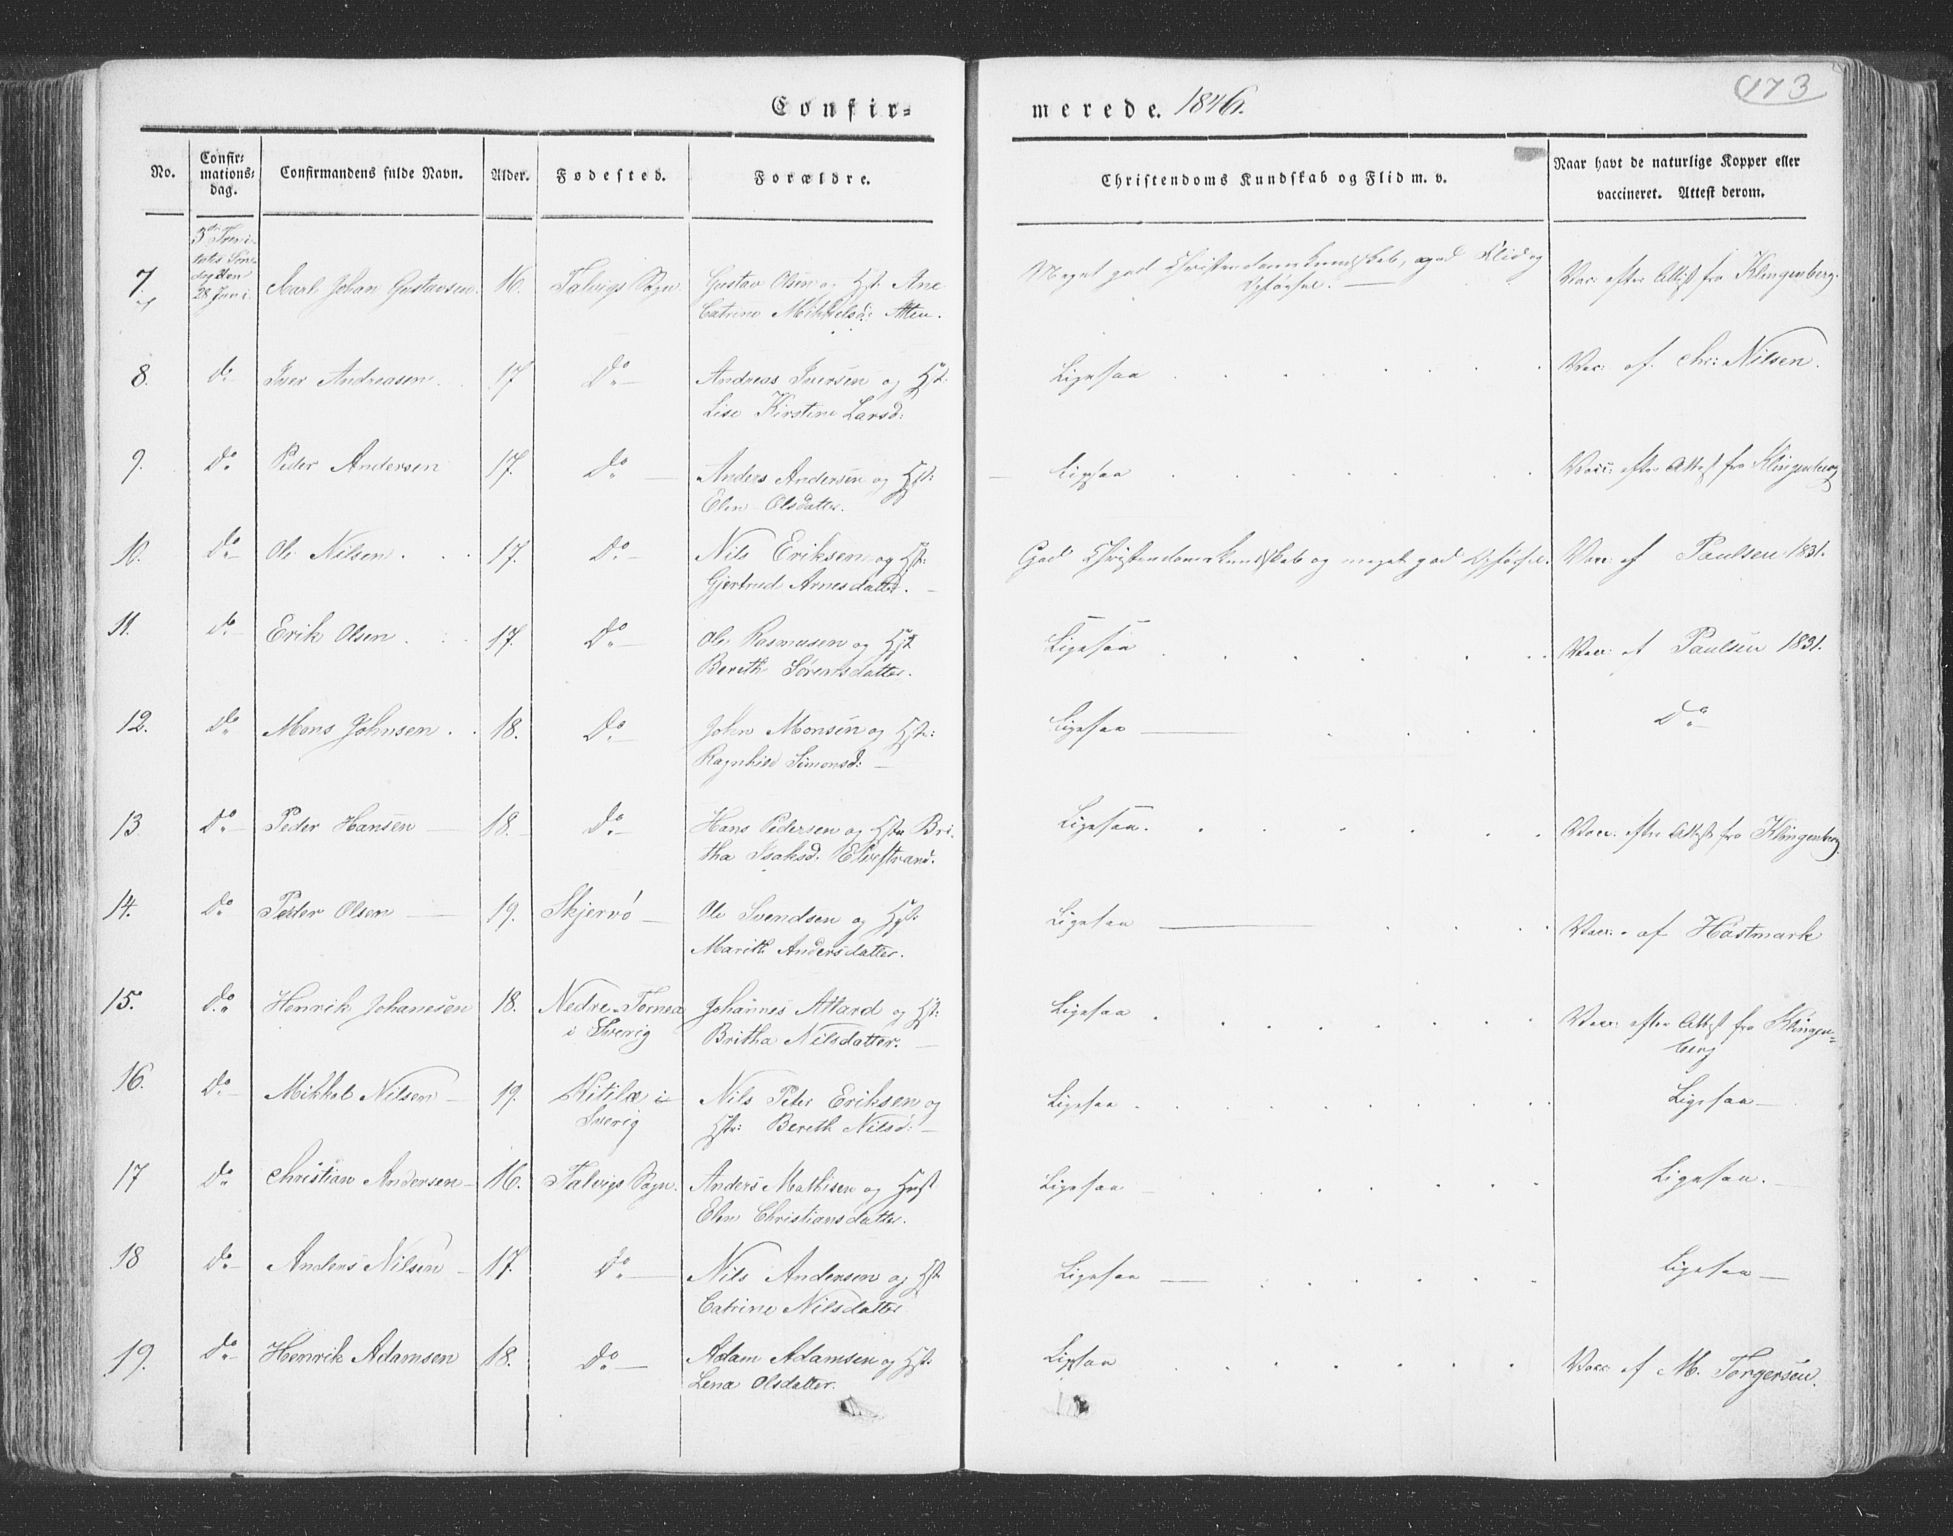 173
Confir=
merede. 1846.
No.
Confir=
mations=
dag.
Confirmandens fulde Navn.
Alder.
Fødested.
Forældre.
Christendoms Kundskab og Flid m. v.
Naar havt de naturlige Kopper eller
vaccineret. Attest derom.
28 Juni
7. Karl Johan Gustavsen. 16. Talvigs Sogn. Gustav Olsen og Hst: Ane
Catrine Mikkelsd: Meget god Christendomskundskab, god Flid og
Opførsel. — Vac: efter Attest fra Klingenberg.
8. do Iver Andreasen. 17 Do — Andreas Iversen og Hst:
Lise Kirstine Larsd: Ligesaa Vac: af Chr: Nilsen.
9. Do Peder Andersen 17. Do Anders Andersen og Hst:
Elen Olsdatter. Ligesaa Vacc: efter Attest fra Klingenberg
10. Do Ole Nilsen. 17. Do — Nils Eriksen og Hst:
Gjertrud Arnesdatter. God Christendomskundskab og meget god Opførsel. Vacc: af Paulsen 1831.
11. do Erik Olsen. 17. Do — Ole Rasmusen og Hst
Bereth Sørensdatter. Ligesaa Vacc: af Paulsen 1831.
12. Do Mons Johnsen. 18. Do — John Monsen og Hst:
Ragnhild Simonsd: — Ligesaa — Do
13. Do Peder Hansen — 18. Do — Hans Pedersen og Hst: Bri-
tha Isaksd: Elvestrand. Ligesaa. Vacc: efter Attest fra Klingenberg
14. Do Peder Olsen — 19. Skjervö — Ole Svendsen og Hst:
Marith Andersdatter. Ligesaa — Vacc: af Hostmark
15. Do Henrik Johanesen 18. Nedre-Tornea
i Sverig Johannes Attard og Hst:
Britha Nilsdatter. — Ligesaa Vacc: efter Attest fra Klingen=
berg
16. Do Mikkel Nilsen — 19. Kitilæ i
Sverig Nils Peter Eriksen og
Hst: Bereth Nilsd: — Ligesaa Ligesaa —
17 Do Christian Andersen — 16. Talvigs Sogn. Anders Mathisen og Hust
Elen Christiansdatter. Ligesaa — Ligesaa. —
18 Do Anders Nilsen — 17. Do — Nils Andersen og Hst
Catrine Nilsdatter Ligesaa — Ligesaa —
19. Do Henrik Adamsen 18. Do — Adam Adamsen og Hst:
Lena Olsdatter. Ligesaa Vacc: af M. Torgersen.